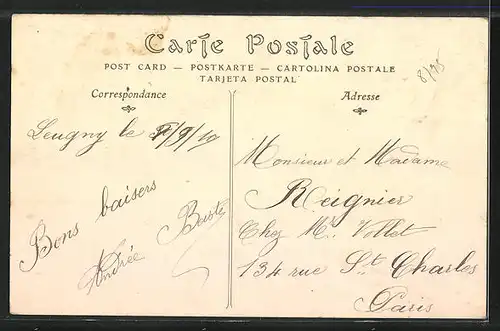 Carte Postale
POST CARD — POSTKARTE — CARTOLINA POSTALE
TARJETA POSTAL
8/95
Correspondance
Adresse
Leugny le
Bons baisers
Andrée
Monsieur et Madame
Reignier
Chez Mr Vollet
134 rue St Charles
Paris